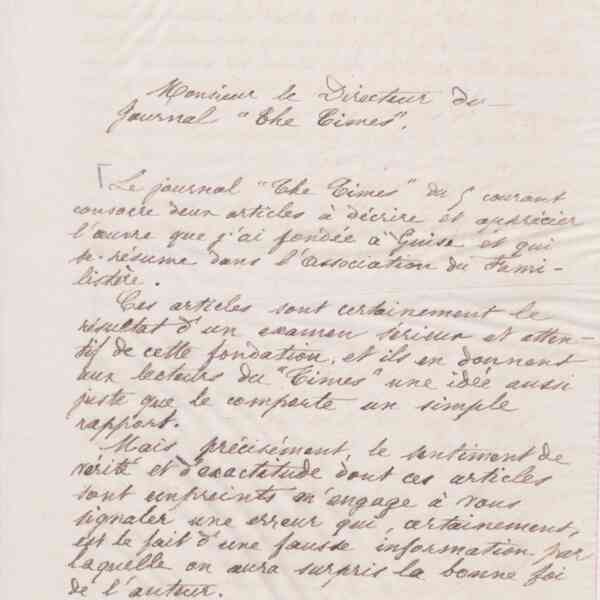 Monsieur le Directeur du
Journal "The Times".
Le journal "The Times" du 5 courant
consacre deux articles à décrire et apprécier
l'œuvre que j'ai fondée à Guise et qui
se résume dans l'Association du Fami-
listère.
Ces articles sont certainement le
résultat d'un examen sérieux et atten-
tif de cette fondation, et ils en donnent
aux lecteurs du "Times" une idée aussi
juste que le comporte un simple
rapport.
Mais précisément, le sentiment de
vérité et d'exactitude dont ces articles
sont empreints m'engage à vous
signaler une erreur qui, certainement,
est le fait d'une fausse information par
laquelle on aura surpris la bonne foi
de l'auteur.